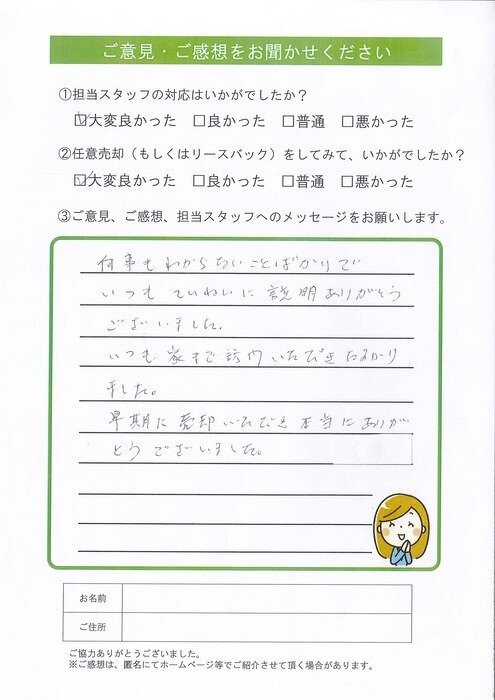 ご意見・ご感想をお聞かせください
①担当スタッフの対応はいかがでしたか？
☑大変良かった □良かった □普通 □悪かった
②任意売却（もしくはリースバック）をしてみて、いかがでしたか？
☑大変良かった □良かった □普通 □悪かった
③ご意見、ご感想、担当スタッフへのメッセージをお願いします。
何事もわからないことばかりで
いつもていねいに説明ありがとう
ございました。
いつも家まで訪問いただきたすかり
ました。
早期に売却いただき本当にありが
とうございました。
お名前
ご住所
ご協力ありがとうございました。
※ご感想は、匿名にてホームページ等でご紹介させて頂く場合があります。